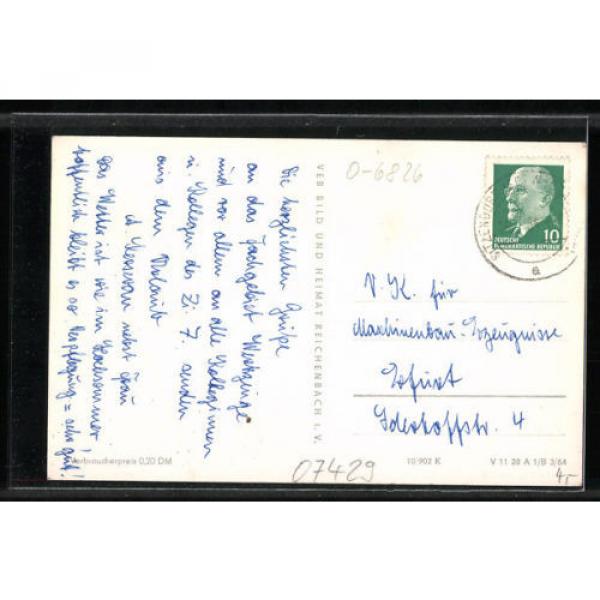 Die herzlichsten Grüße
an das Fachgebiet Werkzeuge
und vor allem an alle Kolleginnen
u. Kollegen des Z. 7. senden
aus dem Urlaub
nebst Frau
Das Wetter ist wie im Hochsommer!
hoffentlich bleibt es so Verpflegung = sehr gut!
Verbraucherpreis 0,20 DM
VEB BILD UND HEIMAT REICHENBACH i. V.
0-6826
10
DEUTSCHE
DEMOKRATISCHE REPUBLIK
a
V. K. für
Maschinenbau-Erzeugnisse
Erfurt
4
07429
10 902 K
V 11 28 A 1/B 3/64
4,-